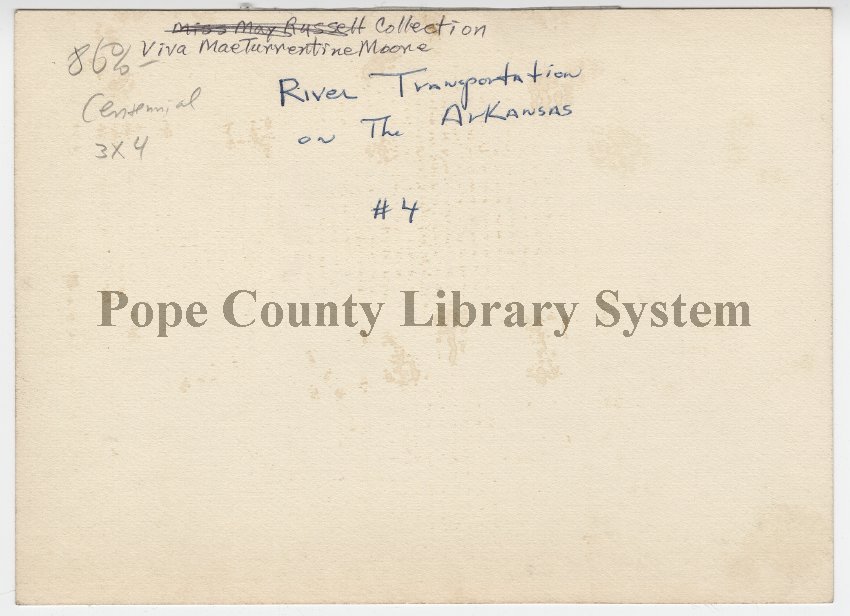 Miss May Russell Collection
Viva Mae Turrentine Moore
86%
River Transportation
on The Arkansas
Centennial
3X4
#4
Pope County Library System